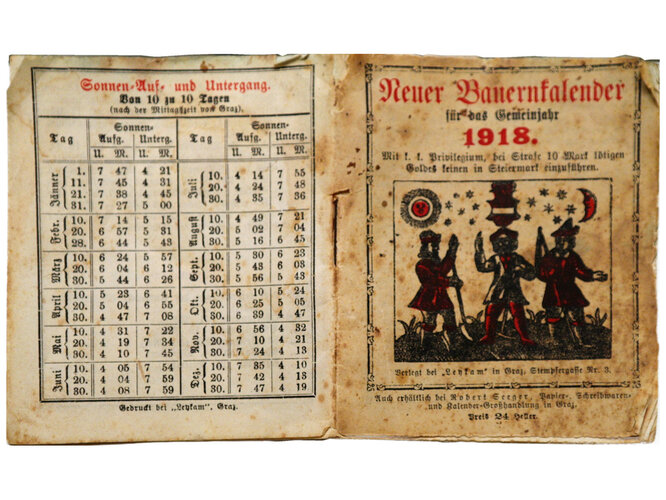 Sonnen-Auf- und Untergang.
Von 10 zu 10 Tagen
(nach der Mittagszeit von Graz).
Tag Sonnen- Aufg. Unterg. Tag Sonnen- Aufg. Unterg.
U. M. U. M. U. M. U. M.
Jänner 1. 7 47 4 21
11. 7 45 4 31
21. 7 38 4 45
31. 7 27 5 00
Febr. 10. 7 14 5 15
20. 6 57 5 31
28. 6 44 5 43
März 10. 6 24 5 57
20. 6 04 6 12
30. 5 44 6 26
April 10. 5 23 6 41
20. 5 04 6 55
30. 4 47 7 08
Mai 10. 4 31 7 22
20. 4 19 7 34
30. 4 10 7 45
Juni 10. 4 05 7 54
20. 4 04 7 59
30. 4 08 7 59
Juli 10. 4 14 7 55
20. 4 24 7 48
30. 4 35 7 36
August 10. 4 49 7 21
20. 5 02 7 04
30. 5 16 6 45
Sept. 10. 5 30 6 23
20. 5 43 6 03
30. 5 56 5 43
Okt. 10. 6 10 5 24
20. 6 25 5 05
30. 6 39 4 47
Nov. 10. 6 56 4 32
20. 7 10 4 21
30. 7 24 4 13
Dez. 10. 7 35 4 10
20. 7 42 4 13
30. 7 47 4 19
Gedruckt bei „Leykam“, Graz.
Neuer Bauernkalender
für das Gemeinjahr
1918.
Mit k. k. Privilegium, bei Strafe 10 Mark lötigen
Goldes keinen in Steiermark einzuführen.
Verlegt bei „Leykam“ in Graz, Stempfergasse Nr. 3.
Auch erhältlich bei Robert Seeger, Papier-, Schreibwaren-
und Kalender-Großhandlung in Graz.
Preis 24 Heller.